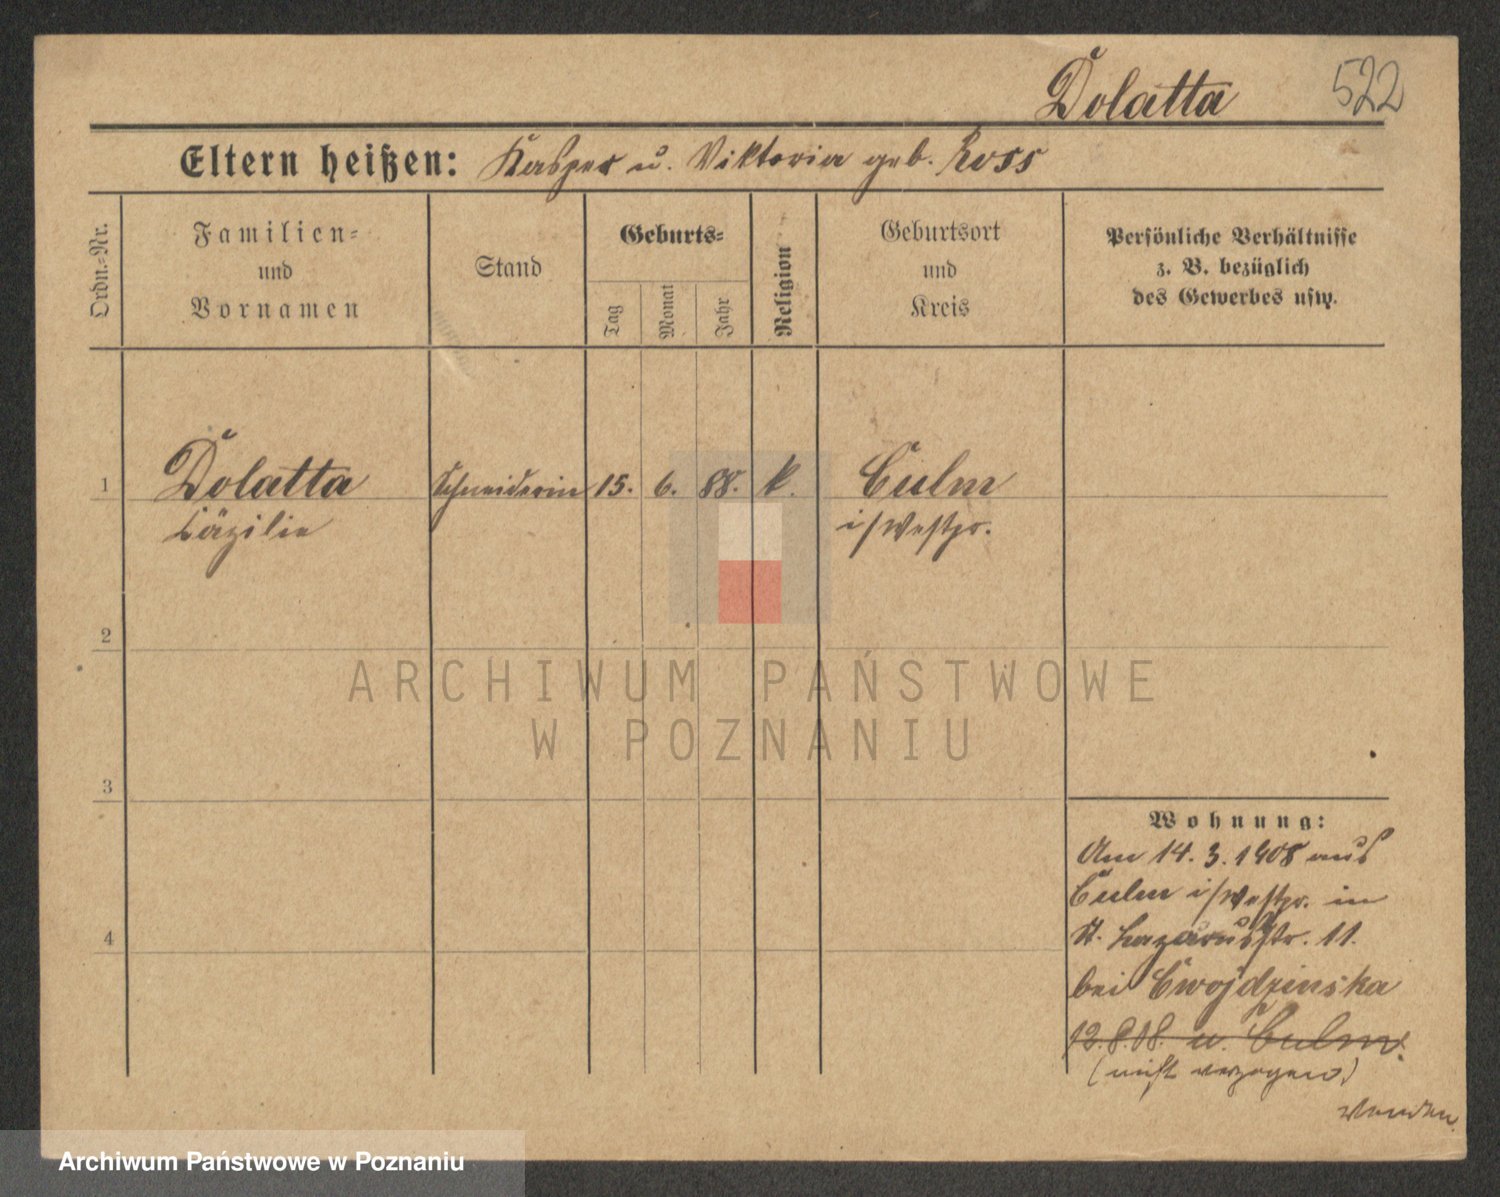 Dolatta 522
Eltern heißen: Kasper u. Viktoria geb. Ross
Ordn.-Nr.
Familien-
und
Vornamen
Stand
Geburts-
Tag
Monat
Jahr
Religion
Geburtsort
und
Kreis
Persönliche Verhältnisse
z. B. bezüglich
des Gewerbes usw.
1 Dolatta Schneiderin 15. 6. 88. k. Culm
Cäzilie i/Westpr.
2
3
4
Wohnung:
Am 14. 3. 1908 aus
Culm i/Westpr. in
St. Lazarusstr. 11.
bei Cwojdzinska
12.8.08. n. Culm.
(nicht verzogen)
wenden.
ARCHIWUM PAŃSTWOWE
W POZNANIU
Archiwum Państwowe w Poznaniu